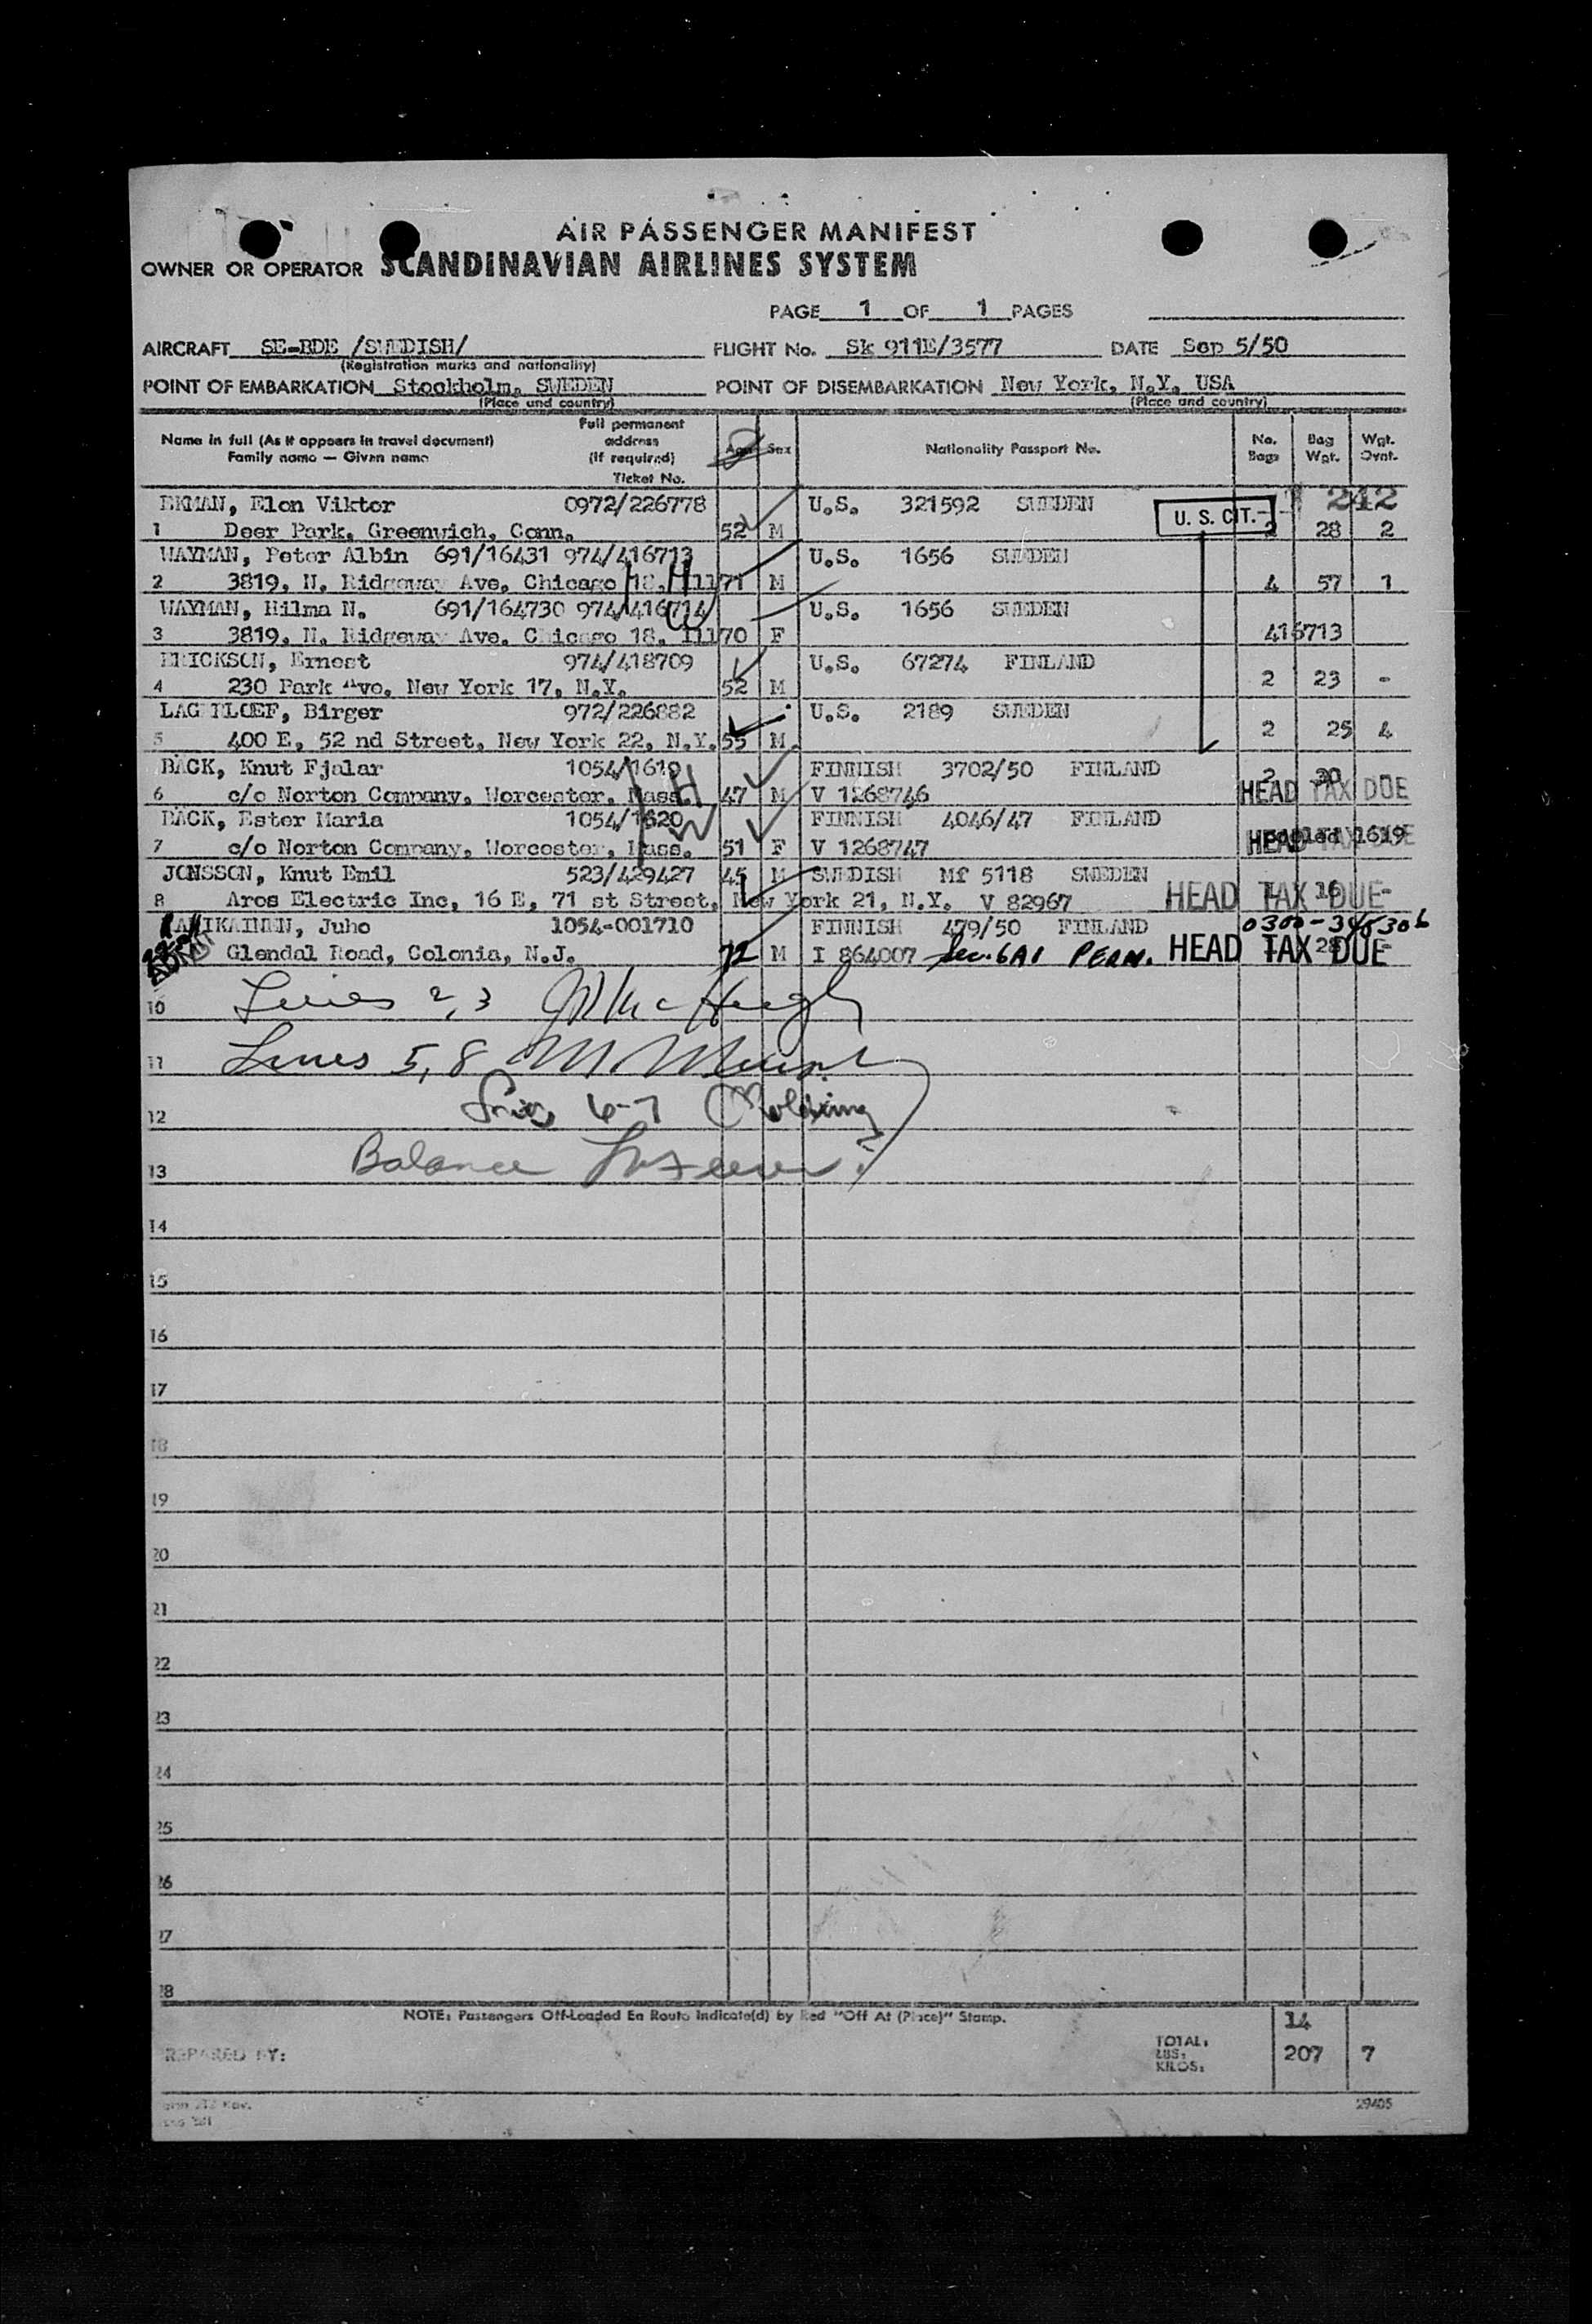 AIR PASSENGER MANIFEST
OWNER OR OPERATOR SCANDINAVIAN AIRLINES SYSTEM
PAGE 1 OF 1 PAGES
AIRCRAFT SE-BDE /SWEDISH/ FLIGHT No. Sk 911E/3577 DATE Sep 5/50
(Registration marks and nationality)
POINT OF EMBARKATION Stockholm, SWEDEN POINT OF DISEMBARKATION New York, N.Y. USA
(Place and country) (Place and country)
Name in full (As it appears in travel document) Family name — Given name Full permanent address (if required) Ticket No. Age Sex Nationality Passport No. No. Bags Bag Wgt. Wgt. Ovnt.
EKMAN, Elon Viktor 0972/226778 U.S. 321592 SWEDEN U. S. CIT. 242
1 Deer Park, Greenwich, Conn. 52 M 28 2
WAYMAN, Peter Albin 691/16431 974/416713 U.S. 1656 SWEDEN
2 3819, N. Ridgeway Ave. Chicago 18, Ill 71 M 4 57 1
H
WAYMAN, Hilma N. 691/164730 974/416714 U.S. 1656 SWEDEN
W
3 3819, N. Ridgeway Ave. Chicago 18, Ill 70 F 416713
ERICKSON, Ernest 974/418709 U.S. 67274 FINLAND
4 230 Park Ave. New York 17, N.Y. 52 M 2 23 -
LAGERLOEF, Birger 972/226882 U.S. 2189 SWEDEN
5 400 E, 52 nd Street, New York 22, N.Y. 55 M 2 25 4
BÄCK, Knut Fjalar 1054/1619 FINNISH 3702/50 FINLAND 2 30 -
6 c/o Norton Company, Worcester, Mass. 47 M V 1268746 HEAD TAX DUE
H
BÄCK, Ester Maria 1054/1620 FINNISH 4046/47 FINLAND
W
7 c/o Norton Company, Worcester, Mass. 51 F V 1268747 HEAD TAX DUE pooled 1619
JONSSON, Knut Emil 523/429427 45 M SWEDISH Mf 5118 SWEDEN
8 Aros Electric Inc, 16 E, 71 st Street, New York 21, N.Y. V 82967 HEAD TAX DUE 16 -
IKAINEN, Juho 1054-001710 FINNISH 479/50 FINLAND 0300-
Glendal Road, Colonia, N.J. 72 M I 864007 Sec. 6A1 PERM. HEAD TAX DUE 28 -
10 Lines 2,3
11 Lines 5,8
12 6-7
13 Balance
14
15
16
17
18
19
20
21
22
23
24
25
26
27
28
NOTE: Passengers Off-Loaded En Route Indicate(d) by Red "Off At (Place)" Stamp.
14
PREPARED BY: TOTAL: LBS: KILOS: 207 7
29405